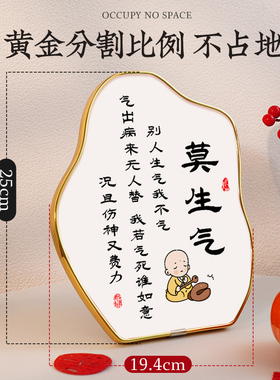 OCCUPY NO SPACE
黄金分割比例 不占地
25cm
莫生气
别人生气我不气
气出病来无人替
我若气死谁如意
况且伤神又费力
19.4cm